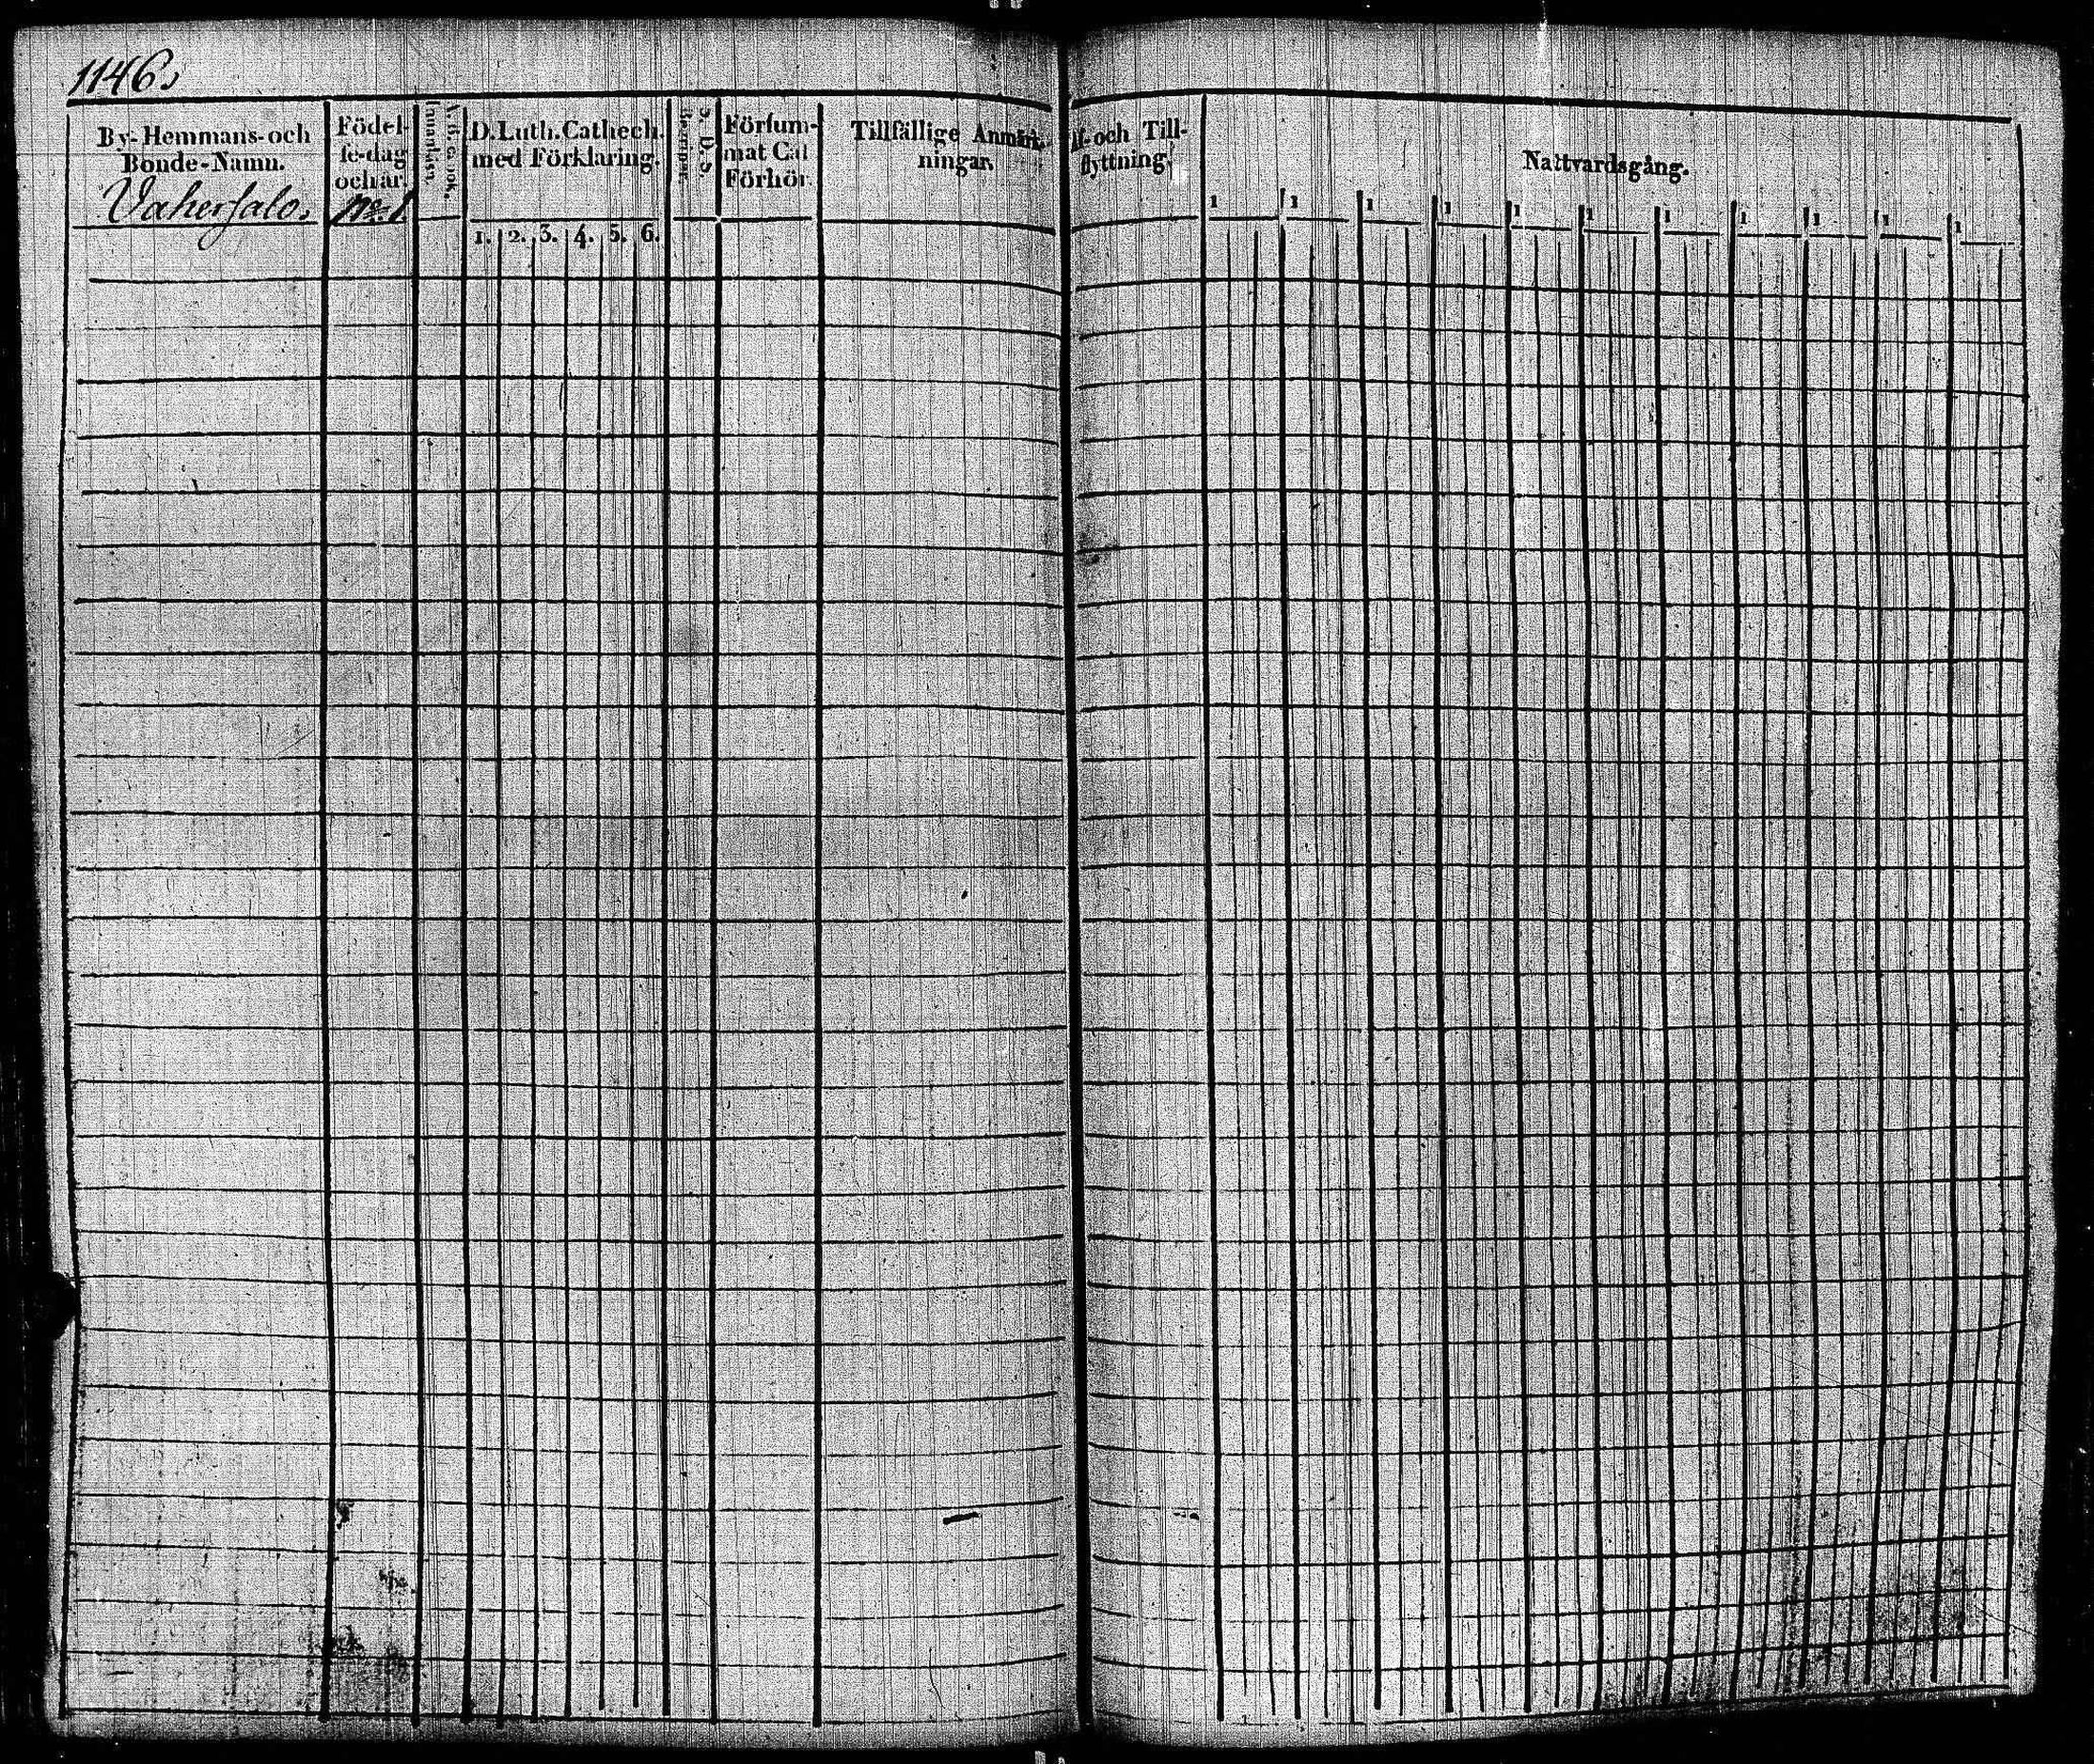 1146.
By-Hemmans-och
Bonde-Namn.
Vahersalo.
Födel-
se-dag
och år.
No. 1
Innanläsn.
A. B. C. bok.
D. Luth. Cathech.
med Förklaring.
1. 2. 3. 4. 5. 6.
Begripor.
Försum-
mat Cat
Förhör.
Tillfällige Anmärk-
ningar.
Af- och Till-
flyttning.
Nattvardsgång.
1 1 1 1 1 1 1 1 1 1 1